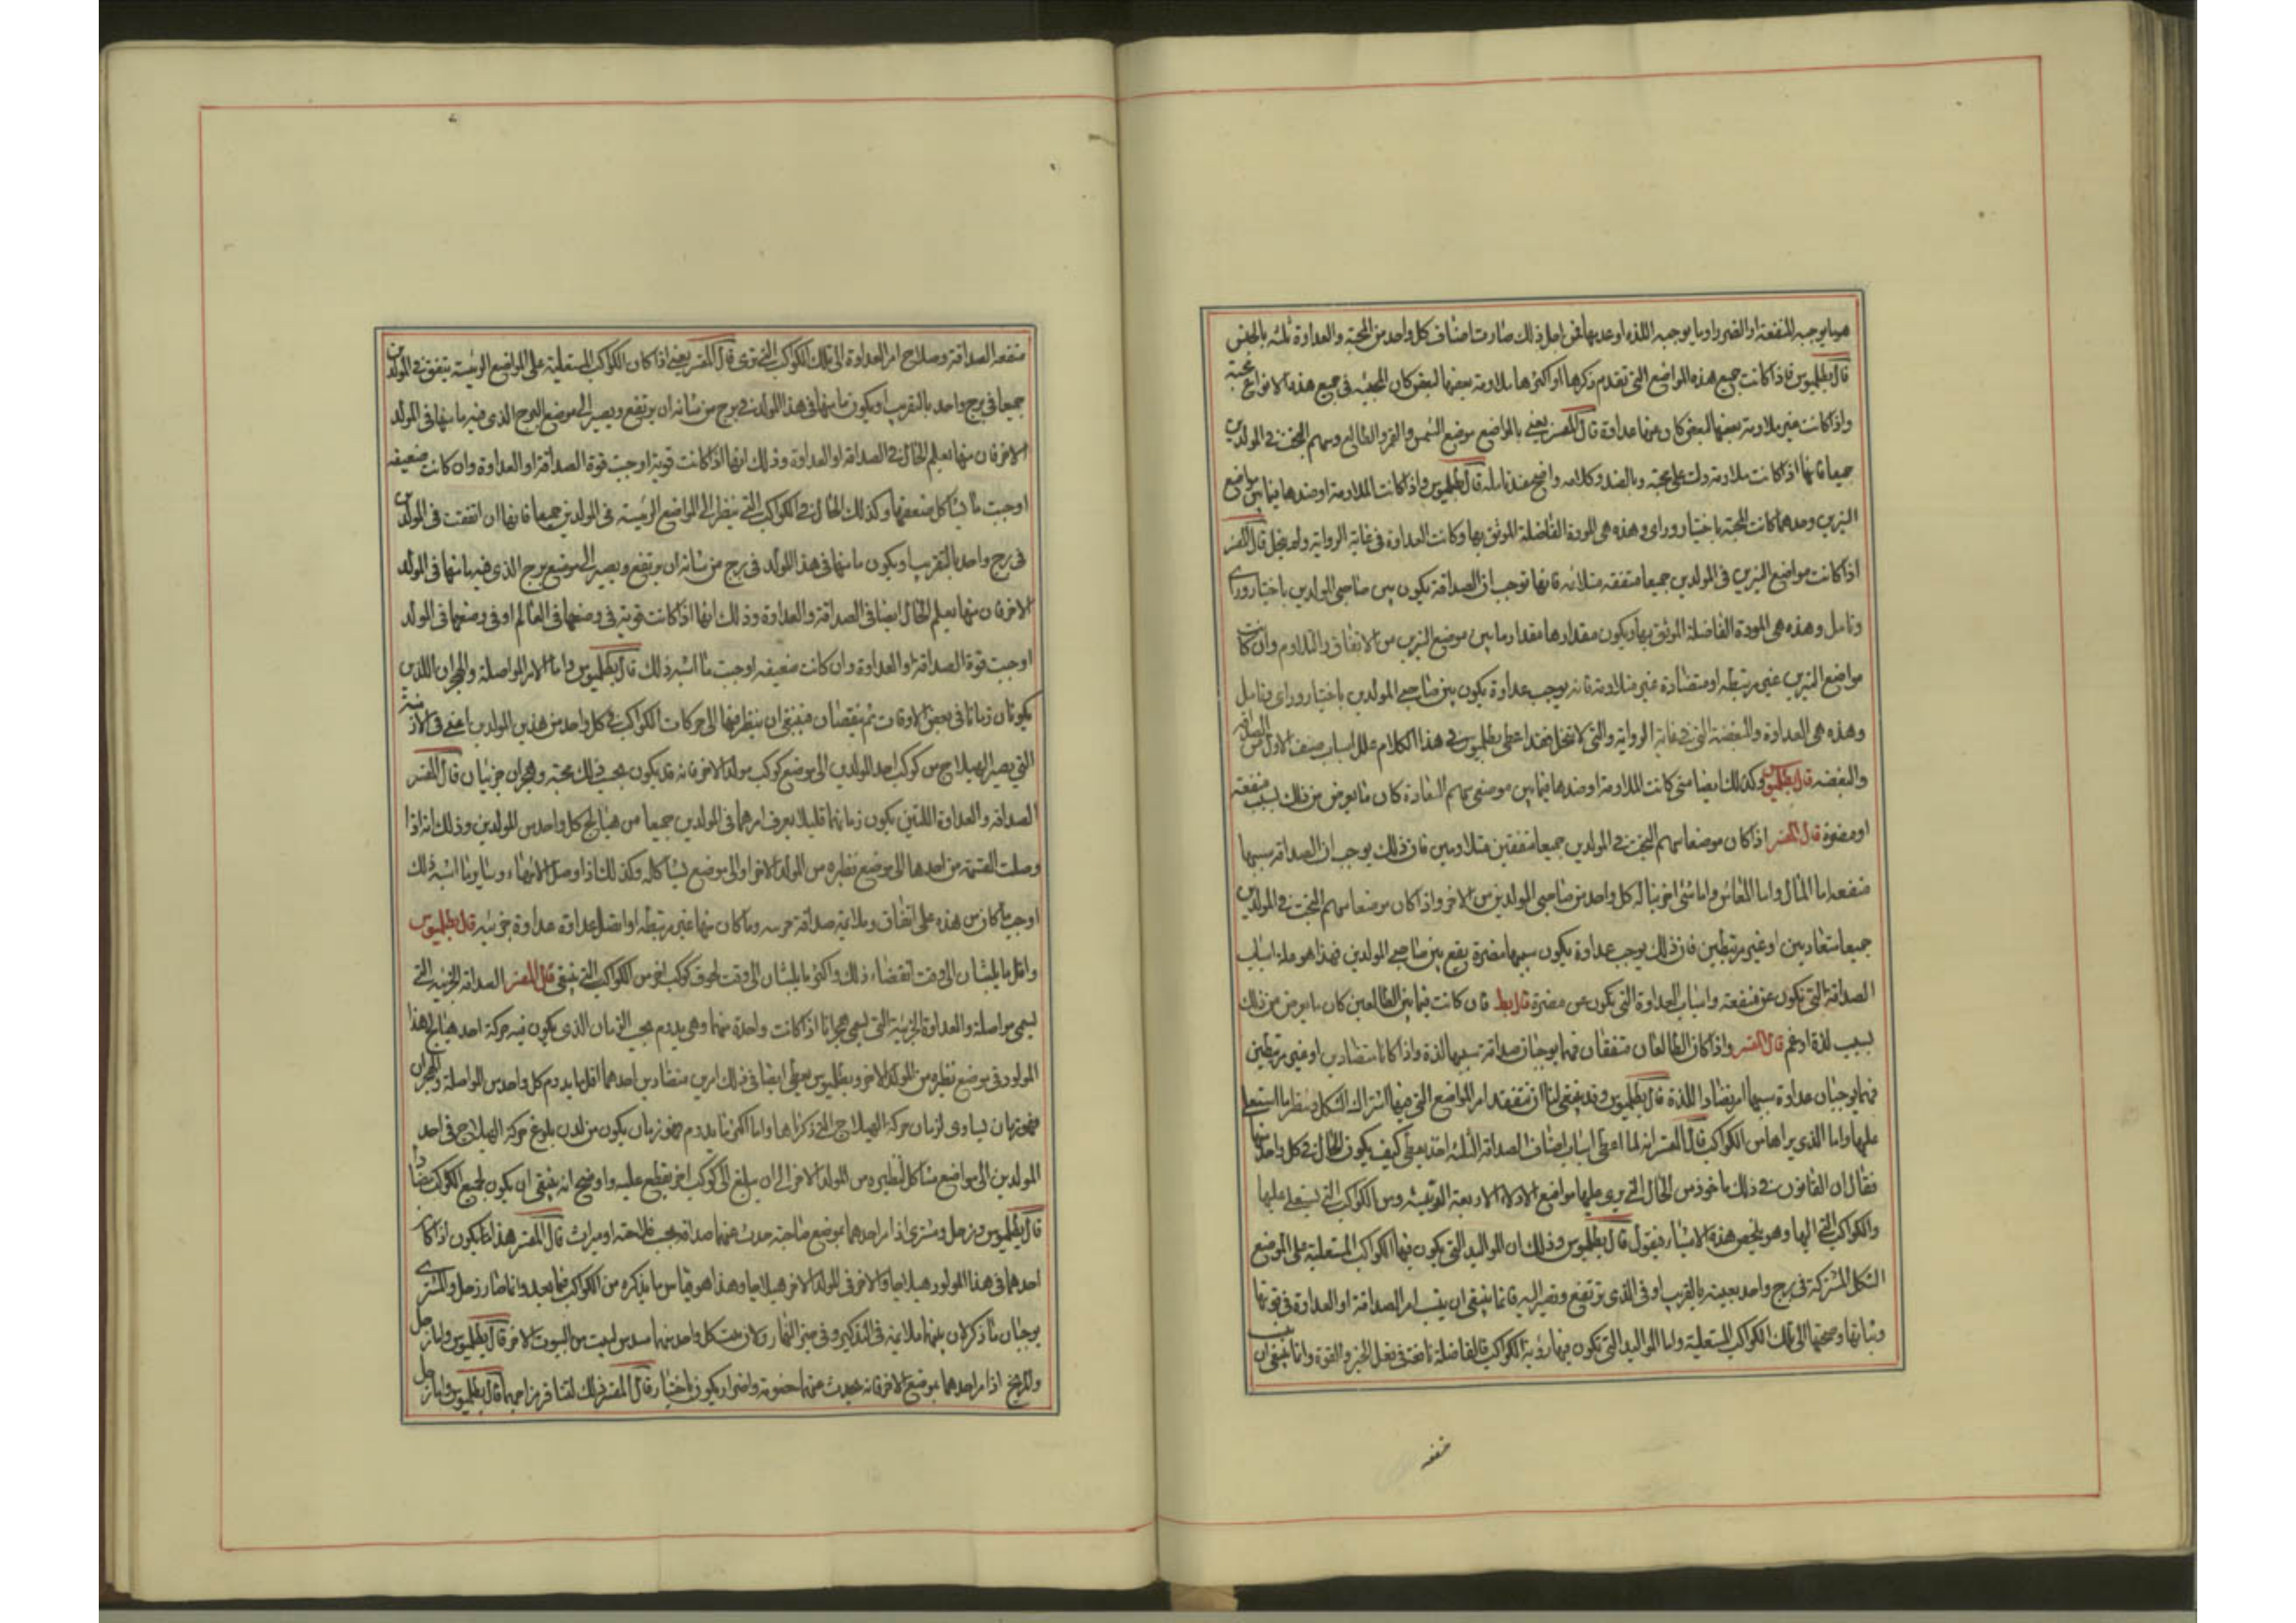 هو ما يوجبه المنفعة او الضرر او ما يوجبه اللذة او عدمها فمن اجل ذلك صارت اصناف كل واحد من المحبة والعداوة ثلثة بالجنس
قال بطلميوس فاذا كانت جميع هذه المواضع التي تقدم ذكرها او اكثرها ملاومة بعضها لبعض كان المحبة في جميع هذه الانواع محبة
واذا كانت غير ملاومة بعضها لبعض كان منها عداوة قال المفسر يعني بالمواضع موضع الشمس والقمر والطالع وسهم البخت في المولدين
جميعا فانها اذا كانت ملاومة دلت على محبة وبالضد وكلامه واضح عند تامله قال بطلميوس واذا كانت الملاومة او ضدها فيما بين مواضع
النيرين وحدهما كانت المحبة باختيار وراي وهذه هي المودة الفاضلة الموثق بها وكانت العداوة في غاية الرواية ولم ينحل قال المفسر
اذا كانت مواضع النيرين في المولدين جميعا متفقة متلائمة فانها توجب ان الصداقة يكون بين صاحبي المولدين باختيار وراي
وتامل وهذه هي المودة الفاضلة الموثق بها ويكون مقدارها مقدار ما بين موضع النيرين من الاتفاق والتلاوم وان كانت
مواضع النيرين غير مرتبطة او متضادة غير متلاومة فانه يوجب عداوة يكون بين صاحبي المولدين باختيار وراي وتامل
وهذه هي العداوة والبغضة التي في غاية الرواية والتي لا تنحل فهذا اعطى بطلميوس في هذا الكلام علل اسباب صنف الاول من الصداقة
والبغضة قال بطلميوس وكذلك ايضا متى كانت الملاومة او ضدها فيما بين موضعي سهام السعادة كان ما يعرض من ذلك بسبب منفعة
او مضرة قال المفسر اذا كان موضعا سهم البخت في المولدين جميعا متفقين متلاومين فان ذلك يوجب ان الصداقة سببها
منفعة اما المال واما المعاش واما شئ اخر يناله كل واحد من صاحبي المولدين من الاخر واذا كان موضعا سهم البخت في المولدين
جميعا متعاديين او غير مرتبطين فان ذلك يوجب عداوة يكون سببها مضرة يقع بين صاحبي المولدين فهذا هو علة اسباب
الصداقة التي يكون عن منفعة واسباب العداوة التي يكون عن مضرة قال بط فان كانت فيما بين الطالعين كان ما يعرض من ذلك
بسبب لذة او غم قال المفسر واذا كان الطالعان متفقان فهما يوجبان صداقة سببها لذة واذا كانا متضادين او غير مرتبطين
فهما يوجبان عداوة سببها امر يضاد اللذة قال بطلميوس وقد ينبغي لنا ان نتفقد امر المواضع التي فيها اشتراك الشكل وننظر ما استعلى
عليها واما الذي يراها من الكواكب قال المفسر انه لما اعطى اسباب اصناف الصداقة الثلثة اخذ يعطي كيف يكون الحال في كل واحد منها
فقال ان القانون في ذلك ماخوذ من الحال التي يرى عليها مواضع الادلاء الاربعة الرئيسة ومن الكواكب التي يستعلي عليها
والكواكب التي اليها وهو يلخص هذه الاشياء فيقول قال بطلميوس وذلك ان المواليد التي يكون فيها الكواكب المستعلية على الموضع
الشكل المشتركة في برج واحد بعينه بالقرب او في الذي يرتفع ويصير اليه فانما ينبغي ان ينسب امر الصداقة او العداوة في قوتها
وثباتها وصحتها الى تلك الكواكب المستعلية واما المواليد التي تكون فيها رؤية الكواكب فالفاضلة نافعة في فعل الخير والقوة وانما ينبغي ان ينسب
منفعة
منفعة الصداقة وصلاح امر العداوة الى تلك الكواكب التي ترى قال المفسر يعني اذا كان الكواكب المستعلية على المواضع الرئيسة يتفق في المولدين
جميعا في برج واحد بالتقريب او يكون ما منها في هذا المولد في برج من شانه ان يرتفع ويصير الى موضع البرج الذي فيه ما منها في المولد
الاخر فان منها يعلم الحال في الصداقة او العداوة وذلك انها اذا كانت قوية اوجبت قوة الصداقة او العداوة وان كانت ضعيفة
اوجبت ما يشاكل ضعفها وكذلك الحال في الكواكب التي ينظر الى المواضع الرئيسة في المولدين جميعا فانها ان اتفقت في المولدين
في برج واحد بالتقريب او يكون ما منها في هذا المولد في برج من شانه ان يرتفع ويصير الى موضع برج الذي فيه ما منها في المولد
الاخر فان منها يعلم الحال ايضا في الصداقة والعداوة وذلك انها اذا كانت قوية في وضعها في العالم او في وضعها في المولد
اوجبت قوة الصداقة او العداوة وان كانت ضعيفة اوجبت ما اشبه ذلك قال بطلميوس واما الامر المواصلة والهجران اللذين
يكونان زمانا في بعض الاوقات ثم ينقضان فينبغي ان ينظر منها الى حركات الكواكب في كل واحد من هذين المولدين اعني في الازمنة
التي يصير الهيلاج من كوكب احد المولدين الى موضع كوكب مولد الاخر فانه قد يكون بحسب ذلك محبة وهجران جزئيان قال المفسر
الصداقة والعداوة اللتين يكون زمانهما قليلا يعرف امرهما في المولدين جميعا من هيلاج كل واحد من المولدين وذلك انه اذا
وصلت القسمة من احدها الى موضع نظيره من المولد الاخر او الى موضع يشاكله وكذلك اذا وصل الانتهاء وسايرنا اشبه ذلك
اوجب ما كان من هذه على اتفاق وملايمة صداقة جزئية وما كان منها غير مرتبطة او اتصل عداوة عداوة جزئية قال بطلميوس
واقل ما يلبثان الى وقت انقضاء ذلك واكثر ما يلبثان الى وقت لحوق كوكب اخر من الكواكب التي ينبغي قال المفسر الصداقة الجزئية التي
يسمى مواصلة والعداوة الجزئية التي يسمى هجرانا اذا كانت واحدة منهما وهي يدوم بحسب الزمان الذي يكون فيه حركة احد هيلاج هذا
المولود في موضع نظيره من المولد الاخر وبطلميوس يعطي ايضا في ذلك امرين متضادين احدهما اقل ما يدوم كل واحد من المواصلة والهجران
فهو زمان يساوي لزمان حركة الهيلاج التي ذكرناها واما اكثر ما يدوم فهو زمان يكون من لدن بلوغ حركة الهيلاج في احد
المولدين الى مواضع مشاكل لنظيره من المولد الاخر الى ان يبلغ الى كوكب اخر يقطع عليه واوضح انه ينبغي ان يكون لجميع الكوكب مضادا
قال بطلميوس وزحل ومشتري اذا مر احدهما بموضع صاحبه حدث عنهما صداقة بسبب فلاحة او ميراث قال المفسر هذا انما يكون اذا كان
احدهما في هذا المولود هيلاجا والاخر في المولد الاخر هيلاجا وهذا هو قياس ما يذكره من الكواكب فيما بعد وانما صار زحل والمشتري
يوجبان ما ذكر لان بينهما ملايمة في التذكير وفي حيز النهار ولان بيت كل واحد منهما مسدس لبيت من البيوت الاخر قال بطلميوس واما زحل
والمريخ اذا مر احدهما بموضع الاخر فانه يحدث عنهما خصومة واضرار يكون باختيار قال المفسر ذلك لتنافر مزاجهما قال بطلميوس واما زحل